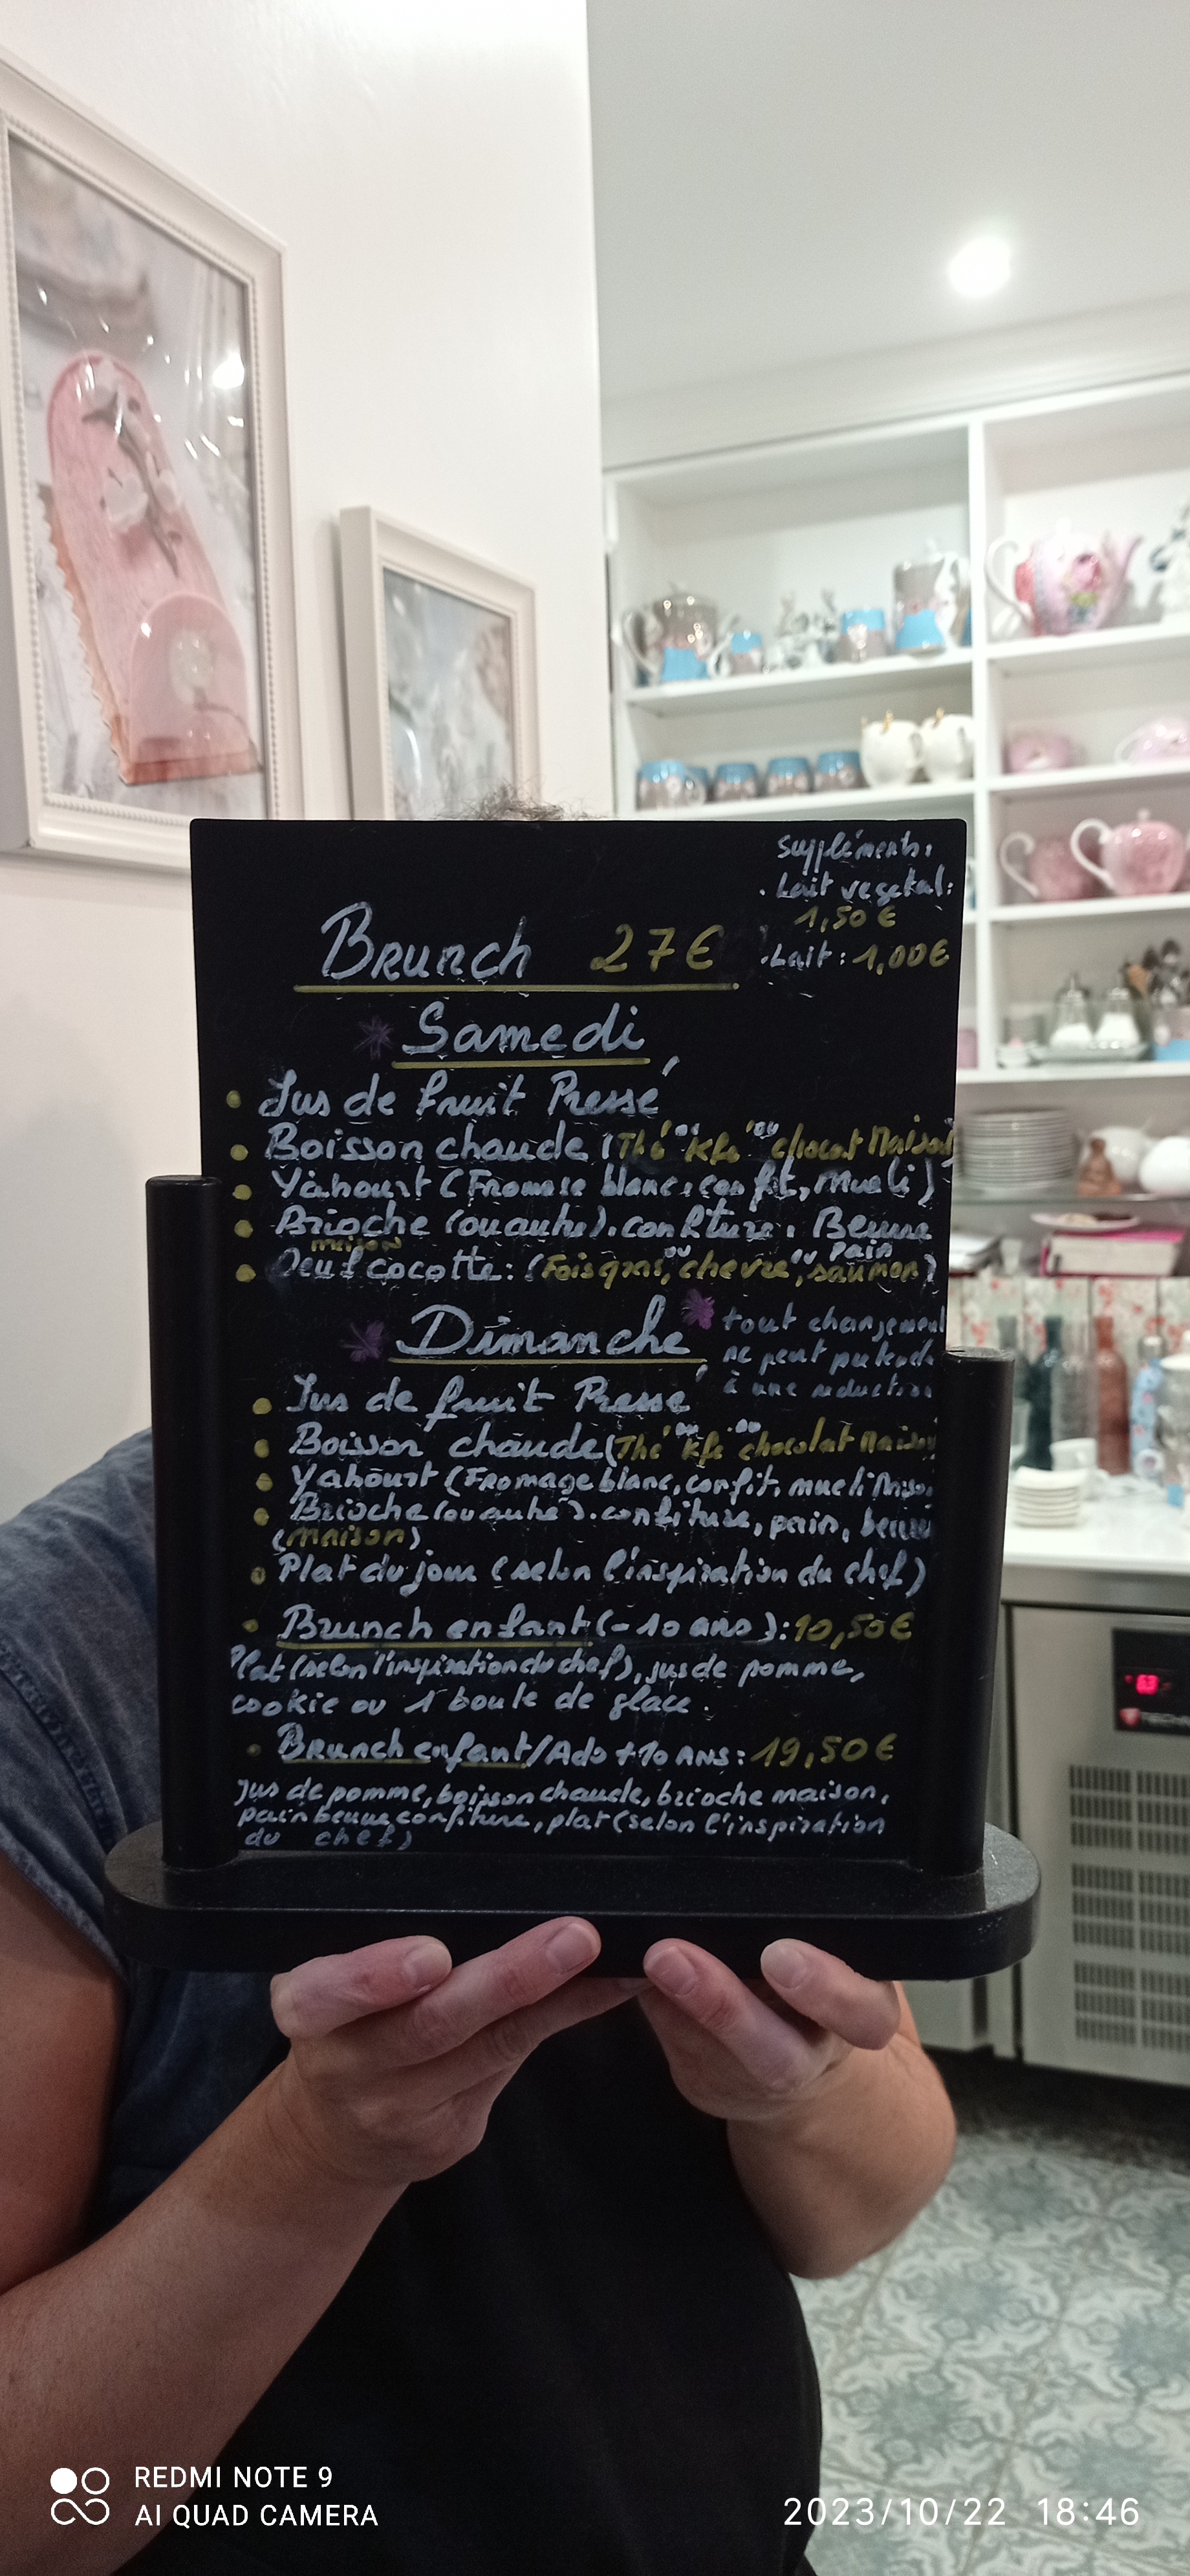 suppléments:
. Lait vegetal:
1,50 €
.Lait : 1,00€
Brunch 27€
Samedi
• Jus de fruit Pressé
• Boisson chaude (Thé "ou" Kfé "ou" chocat Maison
• Yahourt (Fromage blanc, confit, muesli)
• Brioche (ou autre). confiture, Beurre
maison pain
• Oeuf cocotte: (Foisgras, "ou" chevre, "ou" saumon)
Dimanche
tout changement
ne peut pretendre
à une reduction
• Jus de fruit Pressé
• Boisson chaude (Thé "ou" Kfé "ou" chocolat Maison
• Yahourt (Fromage blanc, confit, muesli Maison
• Brioche (ou autre). confiture, pain, beurre
(maison)
• Plat du jour (selon l'inspiration du chef)
• Brunch enfant (-10 ans): 10,50€
Plat (selon l'inspiration du chef), jus de pomme,
cookie ou 1 boule de glace.
• Brunch enfant/Ado +10 ANS: 19,50€
Jus de pomme, boisson chaude, brioche maison,
pain beurre confiture, plat (selon l'inspiration
du chef)
REDMI NOTE 9
AI QUAD CAMERA
2023/10/22 18:46